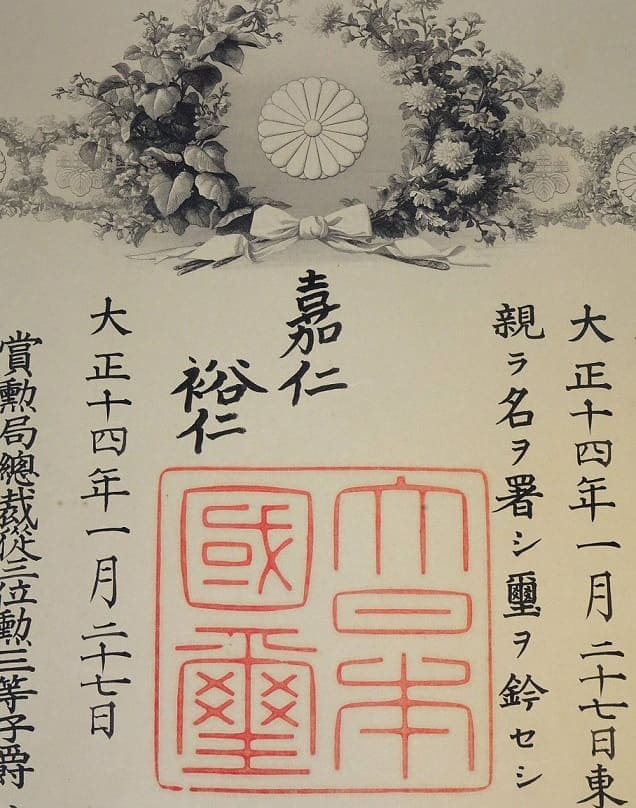 大正十四年一月二十七日東
親ラ名ヲ署シ璽ヲ鈐セシ
嘉仁
裕仁
大日本
國璽
大正十四年一月二十七日
賞勳局總裁從三位勳三等子爵